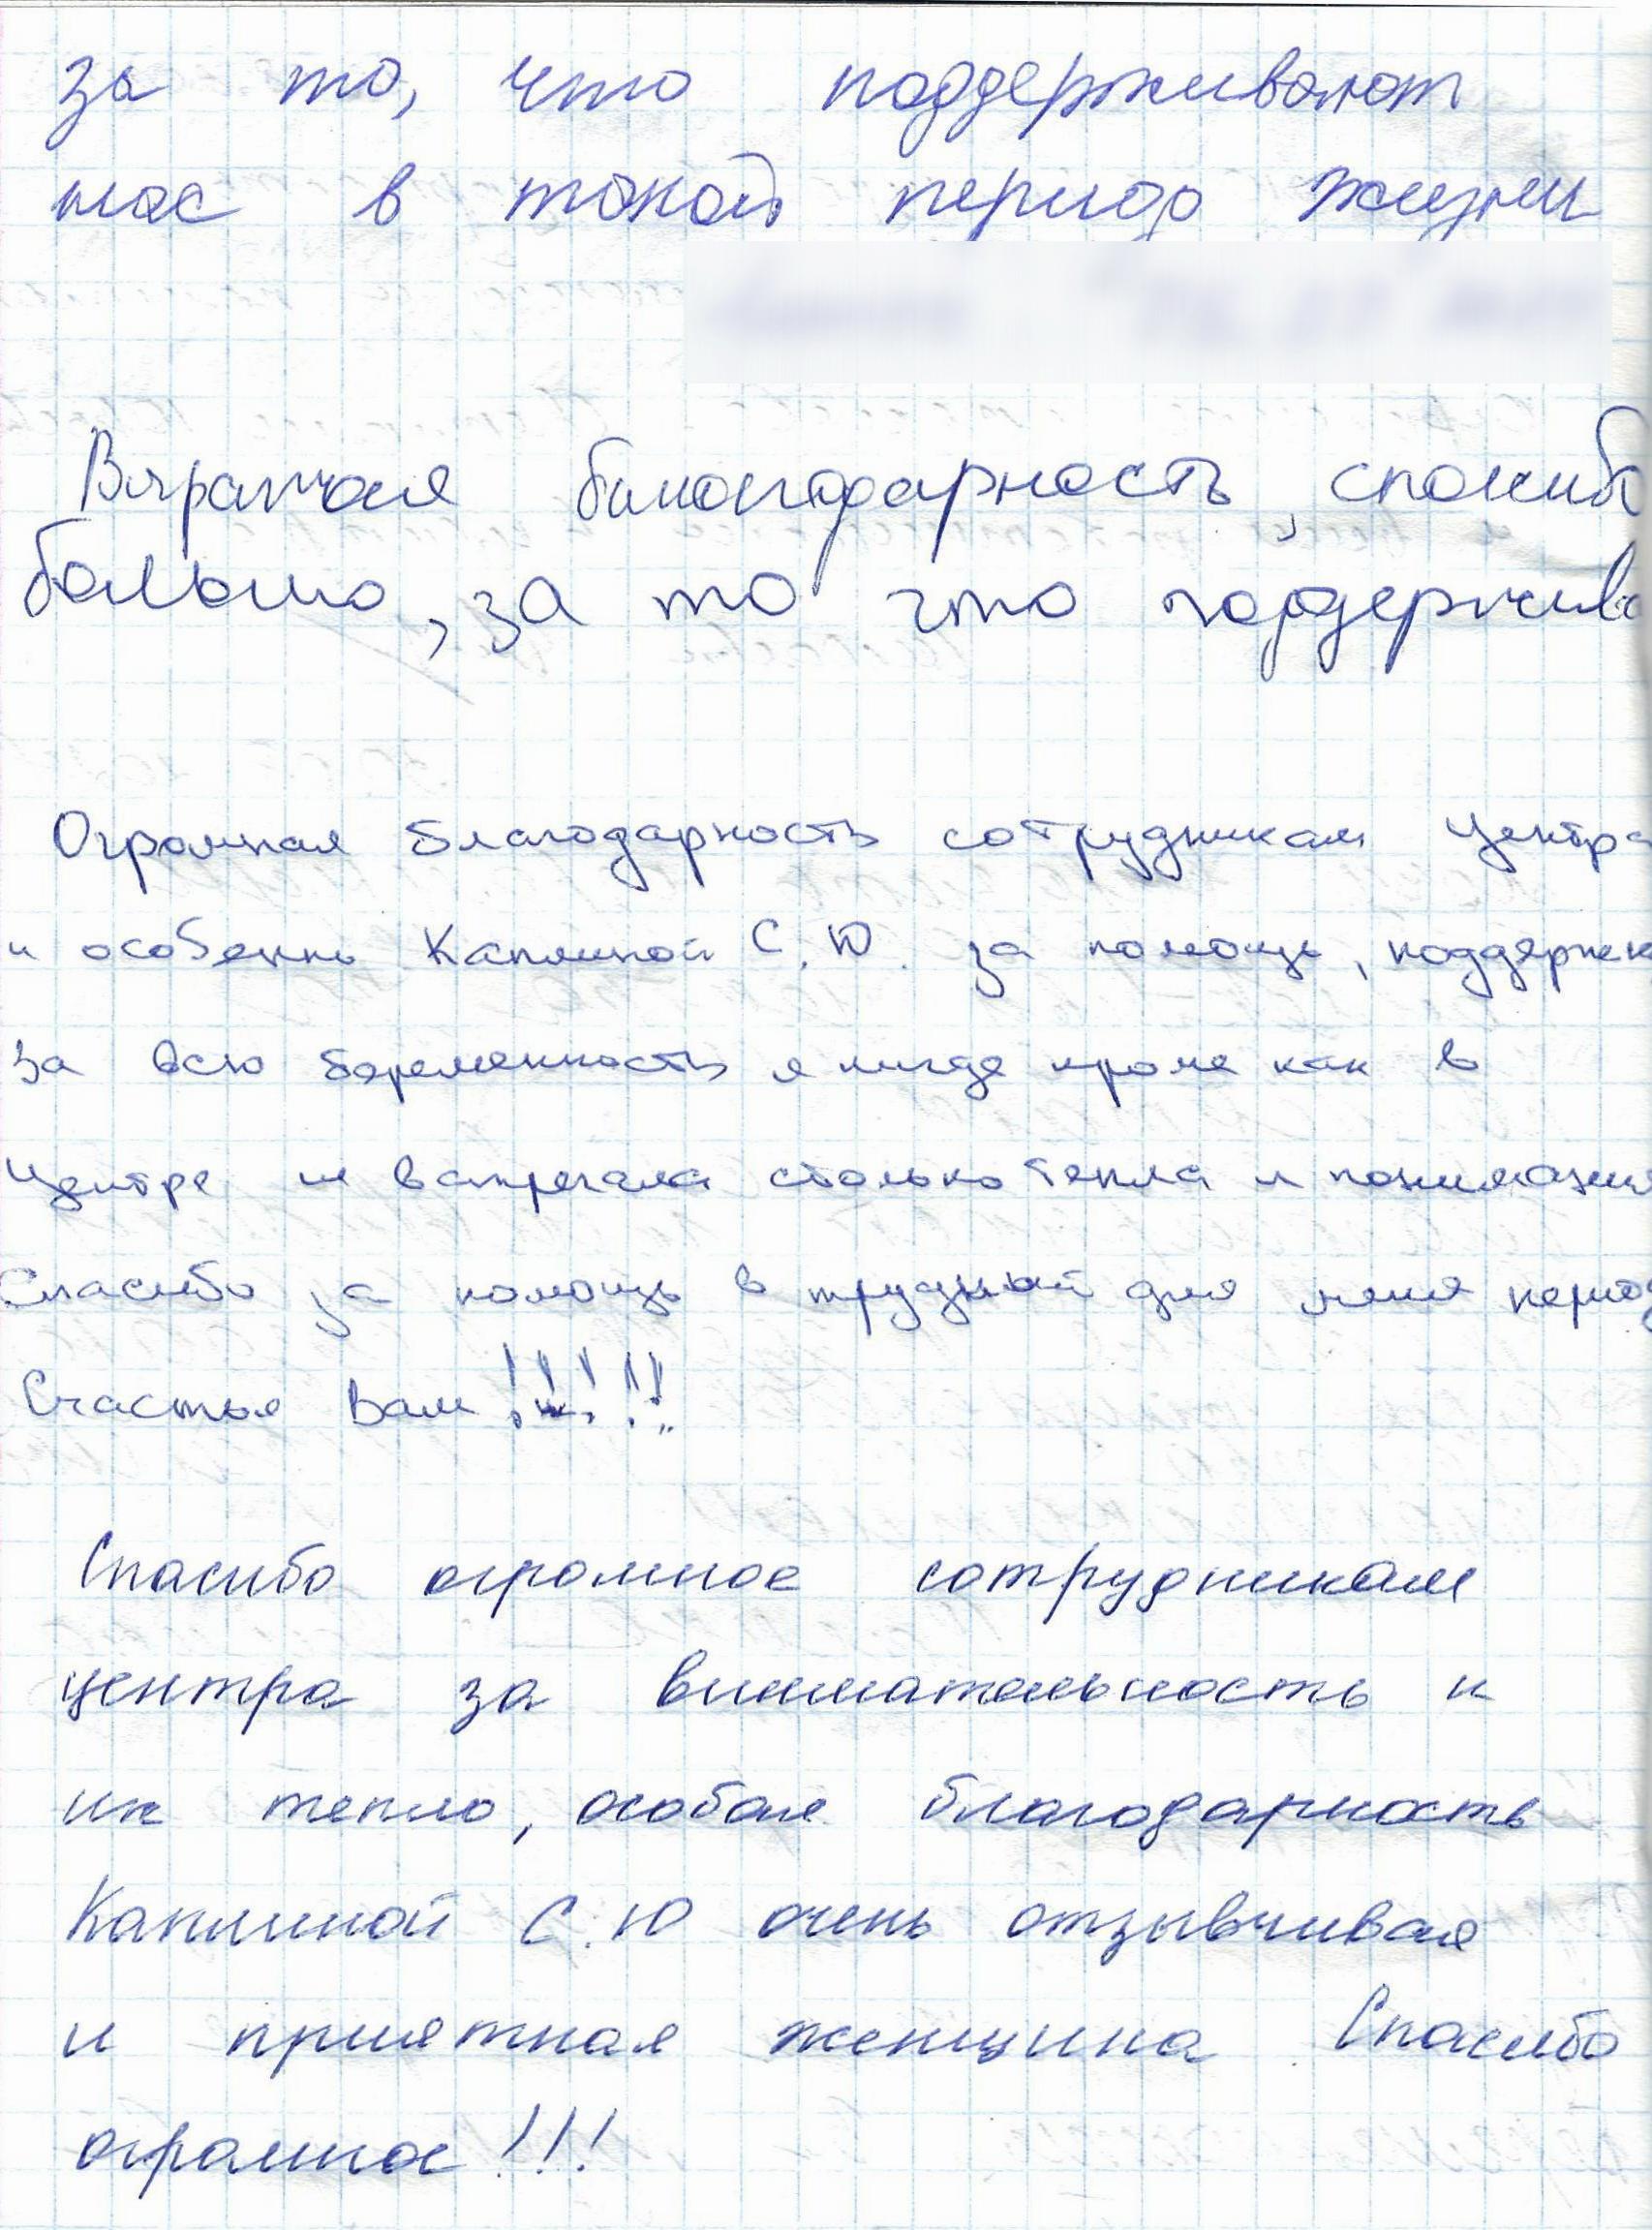 за то, что поддерживают
нас в такой период жизни
благодарность, спасибо
большо, за то что поддержива
Огромная благодарность сотрудникам Центра
и особенно Каплиной С.Ю. за помощь, поддержк
За всю беременность я нигде кроме как в
Центре не встречала столько тепла и понимания
Спасибо за помощь в трудный для меня период
Счастья Вам !!!!!
Спасибо огромное сотрудникам
центра за внимательность и
их тепло, особая благодарность
Каплиной С.Ю очень отзывчивая
и приятная женщина. Спасибо
огромное!!!